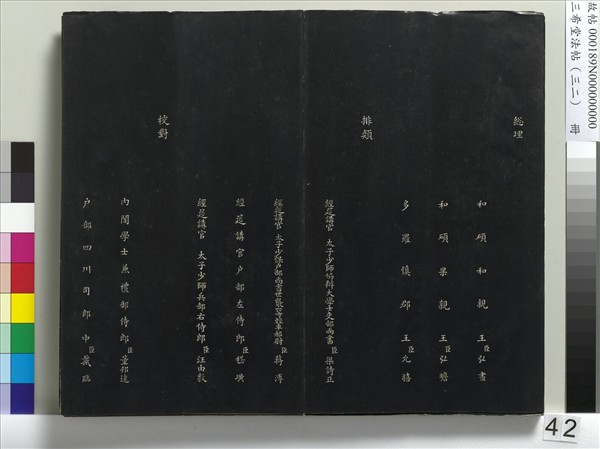 故帖 000189N000000000
三希堂法帖（三二） 冊
総理
和碩和親王臣弘晝
和碩果親王臣弘瞻
多羅慎郡王臣允禧
排類
經筵講官 太子少師協辦大學士吏部尚書臣梁詩正
經筵講官 太子少保戶部尚書世襲一等輕車都尉臣蔣溥
經筵講官戶部左侍郎臣嵇璜
經筵講官 太子少師兵部右侍郎臣汪由敦
校對
內閣學士兼禮部侍郎臣董邦達
戶部四川司郎中臣戴臨
42